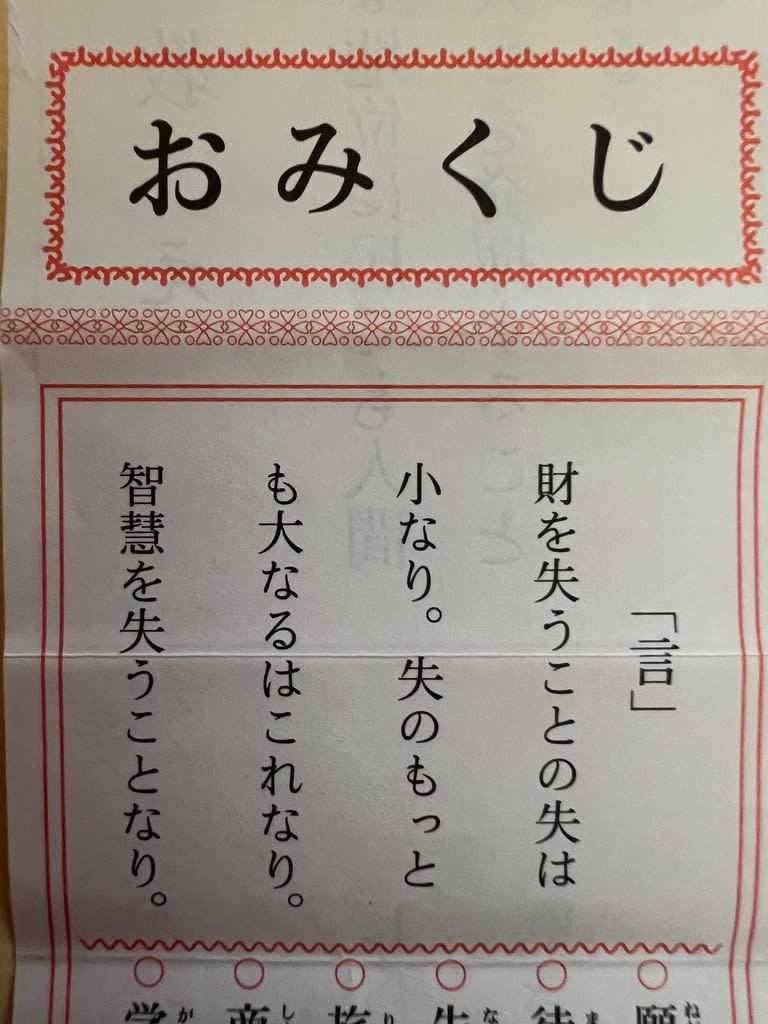 おみくじ
「言」
財を失うことの失は
小なり。失のもっと
も大なるはこれなり。
智慧を失うことなり。